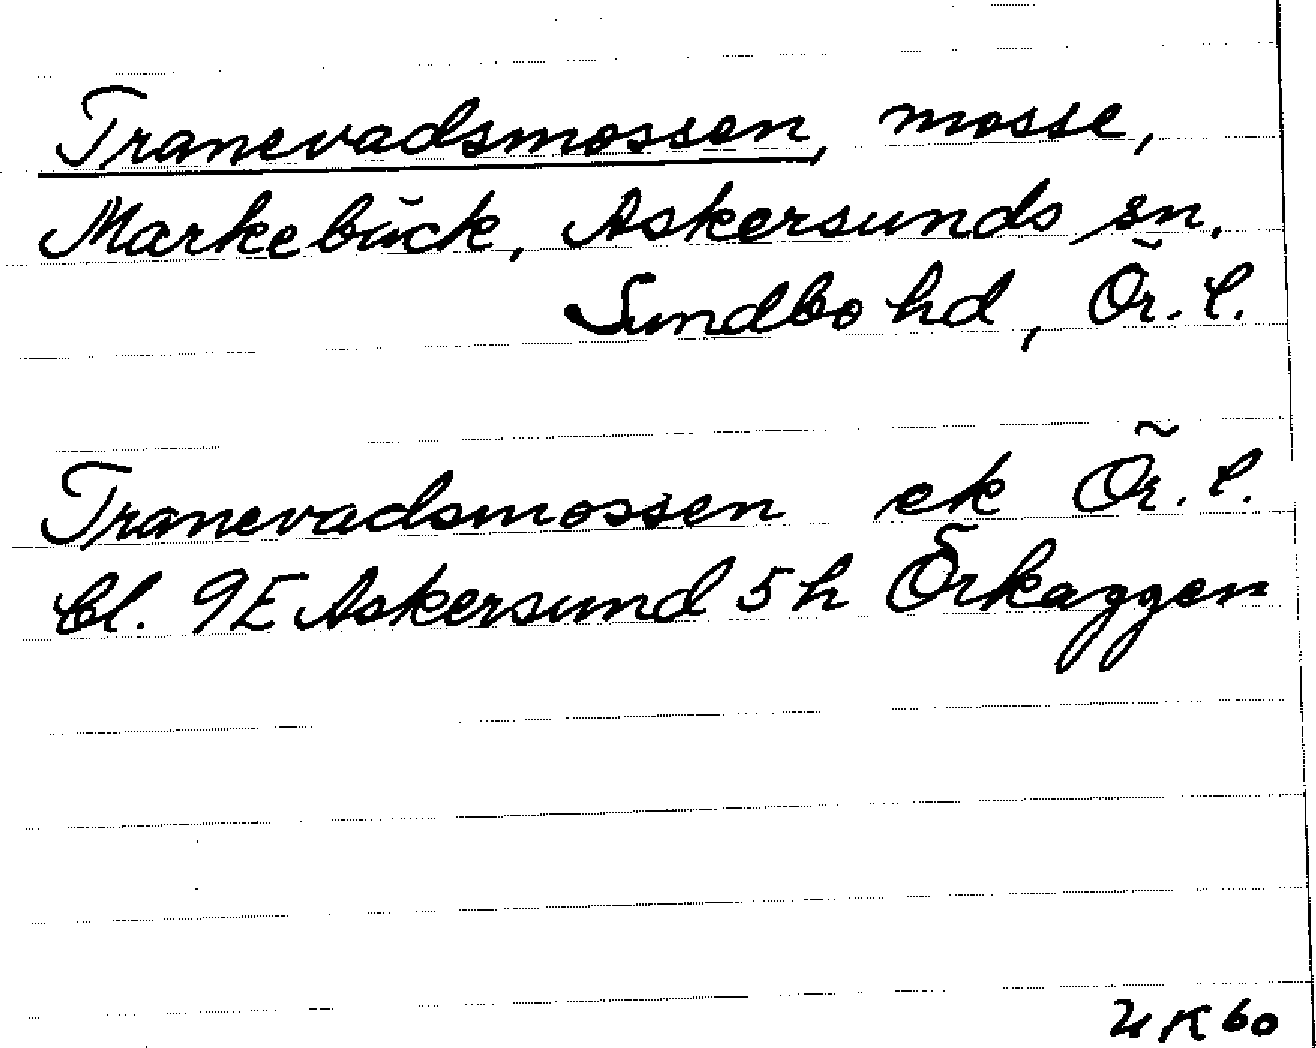 Tranevadsmossen, mosse,
Markebäck, Askersunds sn.
Sundbo hd, Ör. l.
Tranevadsmossen ek Ör. l.
bl. 9E Askersund 5h Örkaggen
UK60